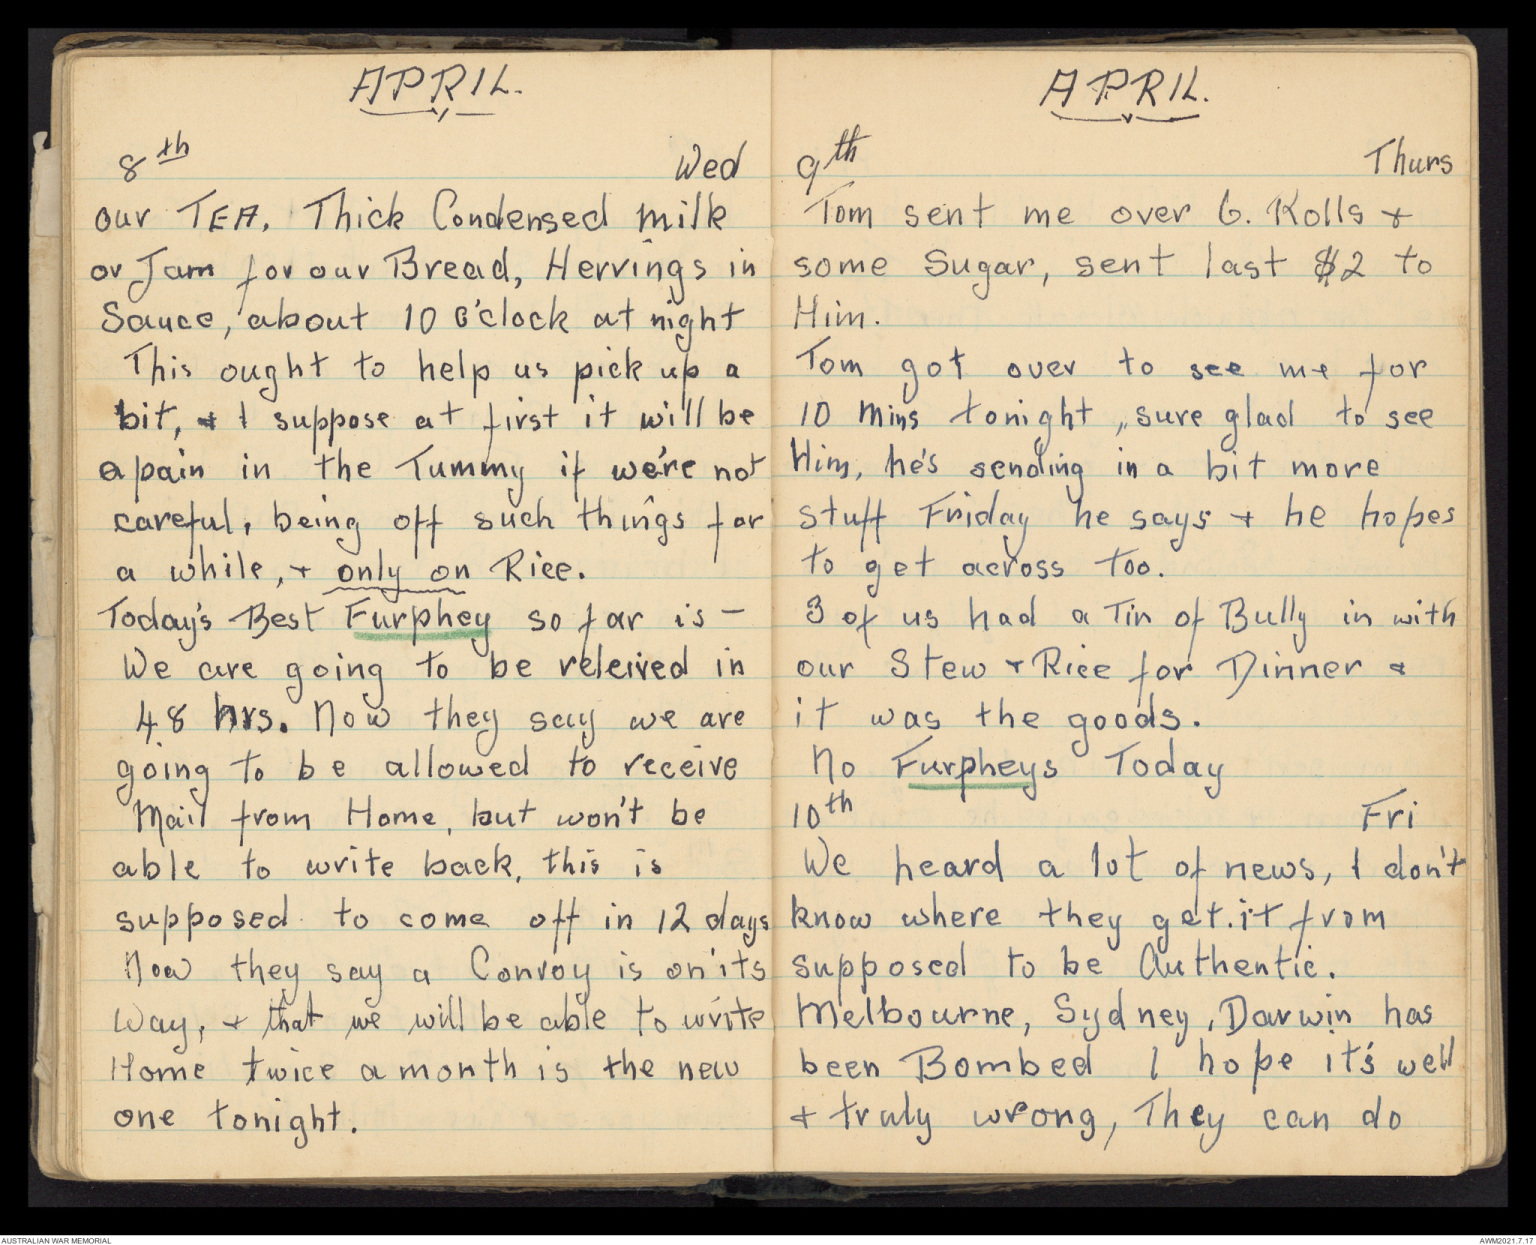 APRIL.
8th Wed
our TEA. Thick Condensed Milk
or Jam for our Bread, Herrings in
Sauce, about 10 O'clock at night
This ought to help us pick up a
bit, + I suppose at first it will be
a pain in the Tummy if we're not
careful, being off such things for
a while, + only on Rice.
Today's Best Furphey so far is –
We are going to be releived in
48 hrs. Now they say we are
going to be allowed to receive
Mail from Home, but won't be
able to write back, this is
supposed to come off in 12 days
Now they say a Convoy is on it's
Way, + that we will be able to write
Home twice a month is the new
one tonight.
APRIL.
9th Thurs
Tom sent me over 6. Rolls +
some Sugar, sent last $2 to
Him.
Tom got over to see me for
10 Mins tonight, sure glad to see
Him, he's sending in a bit more
stuff Friday he says + he hopes
to get across too.
3 of us had a Tin of Bully in with
our Stew + Rice for Dinner +
it was the goods.
No Furpheys Today
10th Fri
We heard a lot of news, I don't
know where they get it from
supposed to be Authentic.
Melbourne, Sydney, Darwin has
been Bombed I hope it's well
+ truly wrong, They can do
AUSTRALIAN WAR MEMORIAL
AWM2021.7.17